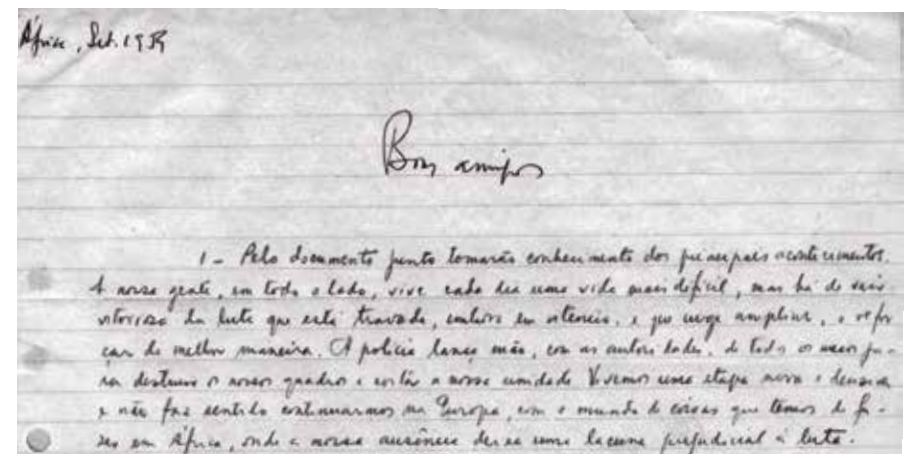 África, Set. 1959
Bons amigos
1 - Pelo documento junto tomarão conhecimento dos principais acontecimentos.
A nossa gente, em todo o lado, vive cada dia uma vida mais difícil, mas há de sair
vitoriosa da luta que está travada, embora, e que urge ampliar, e refor
çar da melhor maneira. A polícia lança mão, com as autoridades, de todos os meios pa-
ra destruir os nossos quadros e cortar a nossa unidade Vivemos uma etapa nova e decisiva
e não faz sentido continuarmos na Europa, com o mundo de coisas que temos de fa-
zer em África, onde a nossa ausência deixa uma lacuna prejudicial à luta.